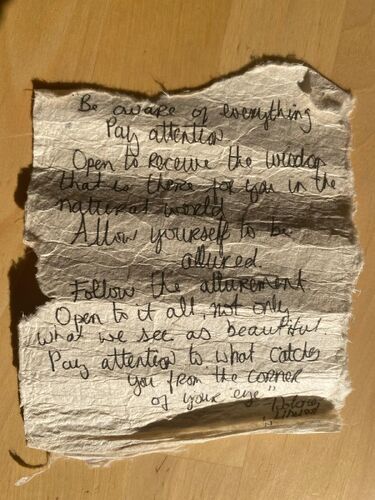 Be aware of everything
Pay attention
Open to receive the wisdom
that is there for you in the
natural world
Allow yourself to be
allured
Follow the allurement.
Open to it all, not only
what we see as beautiful.
Pay attention to what catches
you from the corner
of your eye"